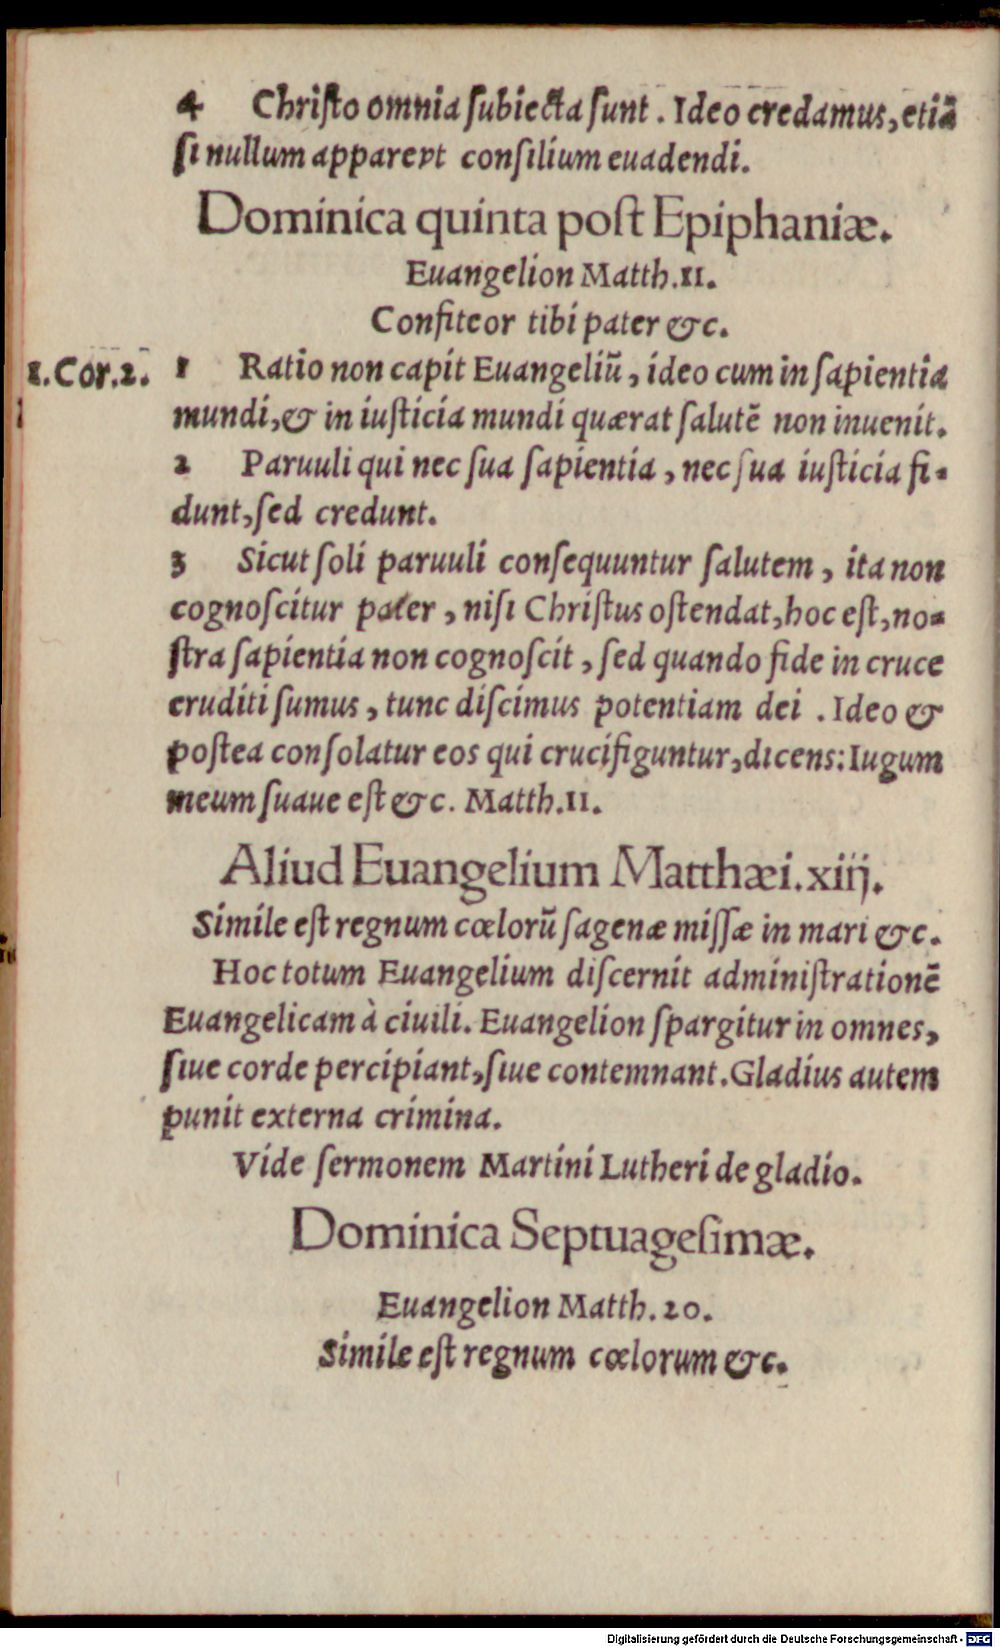 4 Chriſto omnia ſubiecta ſunt. Ideo credamus, etiã
ſi nullum apparent conſilium euadendi.
Dominica quinta poſt Epiphaniæ.
Euangelion Matth.11.
Confiteor tibi pater &c.
1.Cor.2. 1 Ratio non capit Euangeliũ, ideo cum in ſapientia
mundi, & in iuſticia mundi quærat ſalutẽ non inuenit.
2 Paruuli qui nec ſua ſapientia, nec ſua iuſticia fi-
dunt, ſed credunt.
3 Sicut ſoli paruuli conſequuntur ſalutem, ita non
cognoſcitur pater, niſi Chriſtus oſtendat, hoc eſt, no-
ſtra ſapientia non cognoſcit, ſed quando fide in cruce
eruditi ſumus, tunc diſcimus potentiam dei. Ideo &
poſtea conſolatur eos qui crucifiguntur, dicens: Iugum
meum ſuaue eſt &c. Matth.11.
Aliud Euangelium Matthæi.xiij.
Simile eſt regnum cœlorũ ſagenæ miſſæ in mari &c.
Hoc totum Euangelium diſcernit adminiſtrationẽ
Euangelicam à ciuili. Euangelion ſpargitur in omnes,
ſiue corde percipiant, ſiue contemnant. Gladius autem
punit externa crimina.
Vide ſermonem Martini Lutheri de gladio.
Dominica Septuageſimæ.
Euangelion Matth. 20.
Simile eſt regnum cœlorum &c.
Digitalisierung gefördert durch die Deutsche Forschungsgemeinschaft - DFG